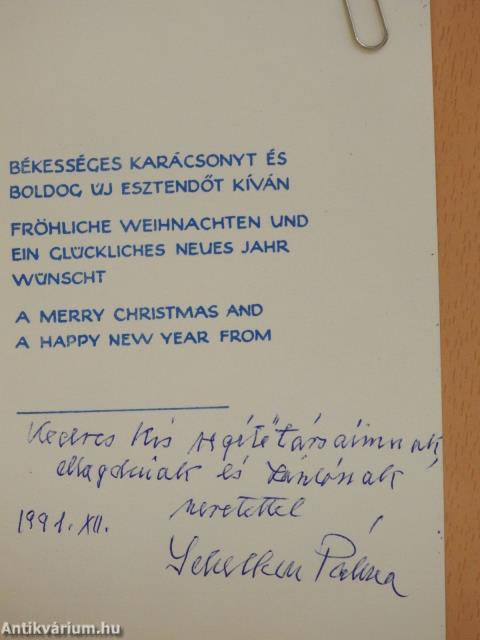 BÉKESSÉGES KARÁCSONYT ÉS
BOLDOG ÚJ ESZTENDŐT KÍVÁN
FRÖHLICHE WEIHNACHTEN UND
EIN GLÜCKLICHES NEUES JAHR
WÜNSCHT
A MERRY CHRISTMAS AND
A HAPPY NEW YEAR FROM
Kedves Kis segítőtársaimnak,
Magdinak és Lászlónak
szeretettel
1991. XII.
Schelken Pálma
Antikvárium.hu